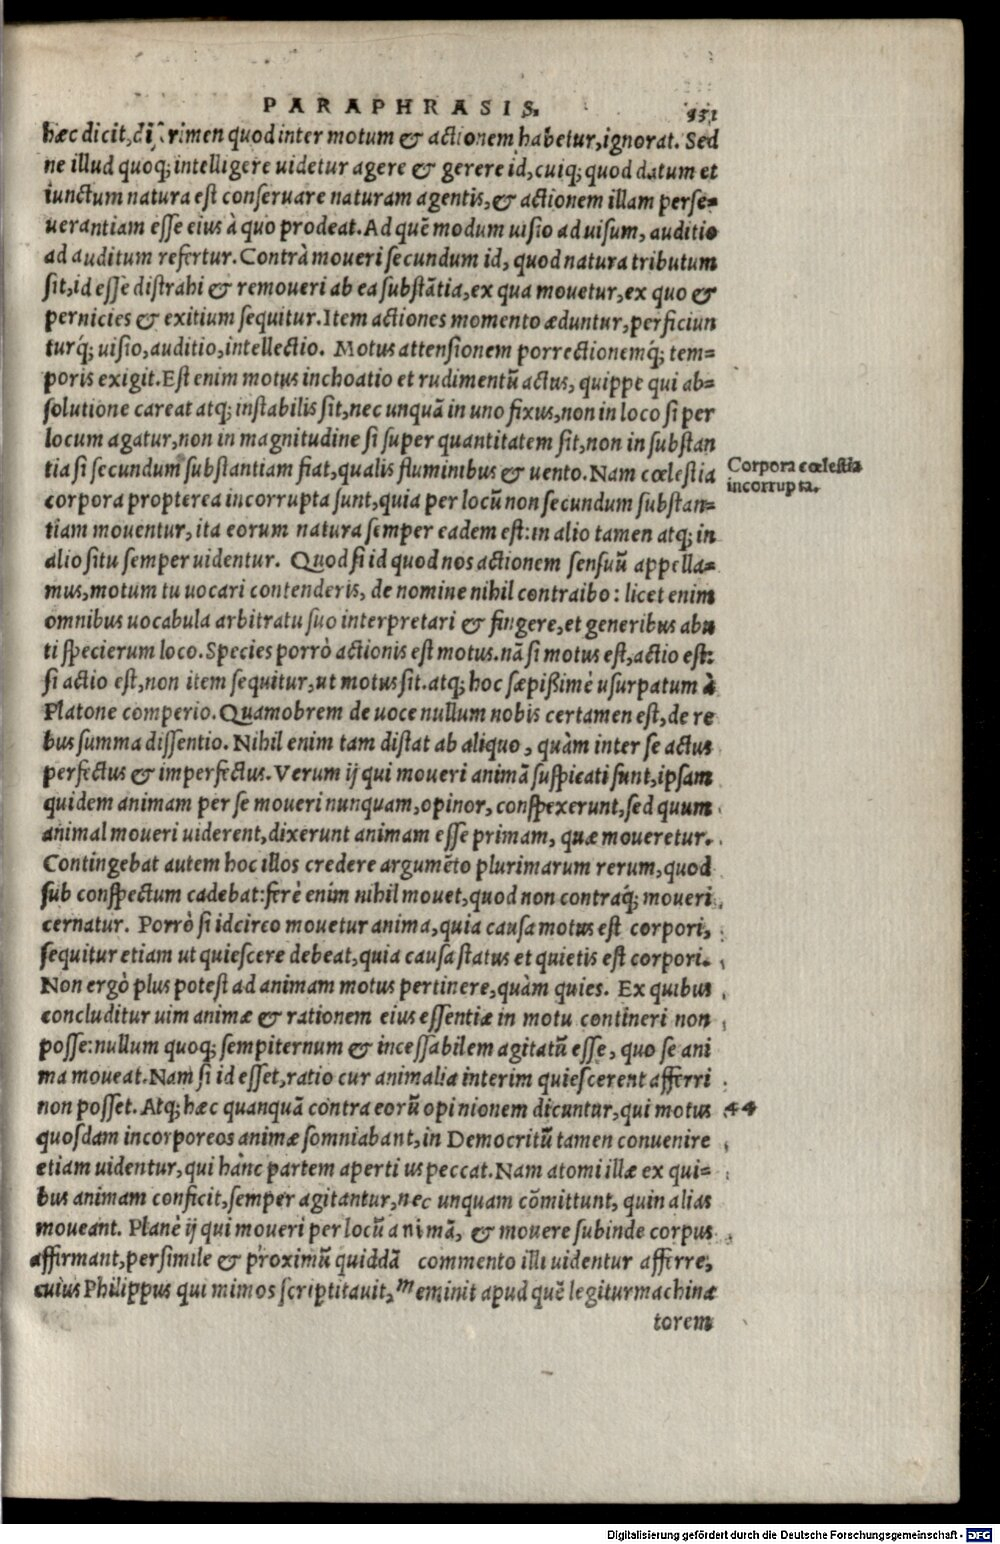 PARAPHRASIS.
hæc dicit, discrimen quod inter motum & actionem habetur, ignorat. Sed
ne illud quoq; intelligere uidetur agere & gerere id, cuiq; quod datum et
iunctum natura est conseruare naturam agentis, & actionem illam perse=
uerantiam esse eius à quo prodeat. Ad quẽ modum uisio ad uisum, auditio
ad auditum refertur. Contrà moueri secundum id, quod natura tributum
sit, id esse distrahi & remoueri ab ea substãtia, ex qua mouetur, ex quo &
pernicies & exitium sequitur. Item actiones momento æduntur, perficiun
turq́; uisio, auditio, intellectio. Motus attensionem porrectionemq́; tem=
poris exigit. Est enim motus inchoatio et rudimentũ actus, quippe qui ab=
solutione careat atq; instabilis sit, nec unquã in uno fixus, non in loco si per
locum agatur, non in magnitudine si super quantitatem sit, non in substan
tia si secundum substantiam fiat, qualis fluminibus & uento. Nam cœlestia
Corpora cœlestia
incorrupta.
corpora propterea incorrupta sunt, quia per locũ non secundum substan=
tiam mouentur, ita eorum natura semper eadem est: in alio tamen atq; in
alio situ semper uidentur. Quod si id quod nos actionem sensuũ appella=
mus, motum tu uocari contenderis, de nomine nihil contraibo: licet enim
omnibus uocabula arbitratu suo interpretari & fingere, et generibus abu
ti specierum loco. Species porrò actionis est motus. nã si motus est, actio est:
si actio est, non item sequitur, ut motus sit. atq; hoc sæpißimè usurpatum à
Platone comperio. Quamobrem de uoce nullum nobis certamen est, de re
bus summa dissensio. Nihil enim tam distat ab aliquo, quàm inter se actus
perfectus & imperfectus. Verum ij qui moueri animã suspicati sunt, ipsam
quidem animam per se moueri nunquam, opinor, conspexerunt, sed quum
animal moueri uiderent, dixerunt animam esse primam, quæ moueretur.
Contingebat autem hoc illos credere argumẽto plurimarum rerum, quod
sub conspectum cadebat: ferè enim nihil mouet, quod non contraq́; moueri
cernatur. Porrò si idcirco mouetur anima, quia causa motus est corpori,
sequitur etiam ut quiescere debeat, quia causa status et quietis est corpori.
Non ergò plus potest ad animam motus pertinere, quàm quies. Ex quibus
concluditur uim animæ & rationem eius essentiæ in motu contineri non
posse: nullum quoq; sempiternum & incessabilem agitatũ esse, quo se ani
ma moueat. Nam si id esset, ratio cur animalia interim quiescerent afferri
non posset. Atq; hæc quanquã contra eorũ opinionem dicuntur, qui motus 44
quosdam incorporeos animæ somniabant, in Democritũ tamen conuenire
etiam uidentur, qui hanc partem apertius peccat. Nam atomi illæ ex qui=
bus animam conficit, semper agitantur, nec unquam cõmittunt, quin alias
moueant. Planè ij qui moueri per locũ animã, & mouere subinde corpus
affirmant, persimile & proximũ quiddã commento illi uidentur afferre,
cuius Philippus qui mimos scriptitauit, meminit apud quẽ legitur machinæ
torem
Digitalisierung gefördert durch die Deutsche Forschungsgemeinschaft - DFG